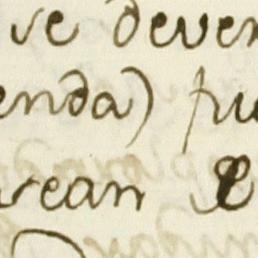 se deven
enda) fu
sean